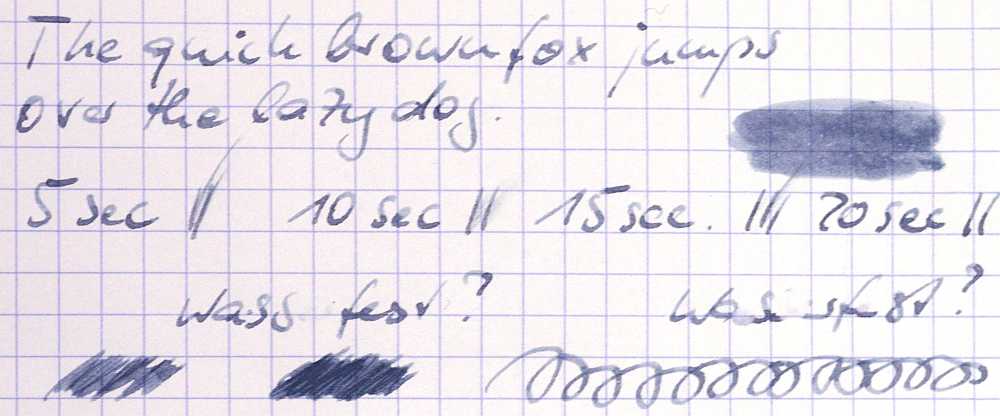 The quick brown fox jumps
over the lazy dog.
5 sec || 10 sec || 15 sec. ||| 20 sec ||